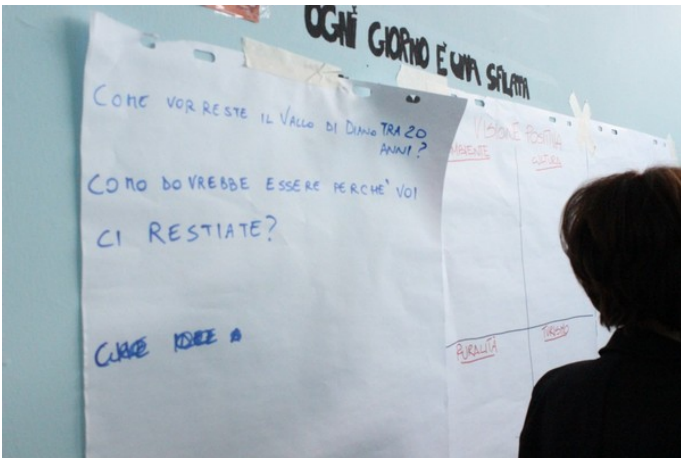 OGNÌ GIORNO È UNA SFILATA
COME VORRESTE IL VALLO DI DIANO TRA 20
ANNI?
COMO DOVREBBE ESSERE PERCHE' VOI
CI RESTIATE?
VISIONE POSITIVA
AMBIENTE
CULTURA
RURALITÀ
TURISMO